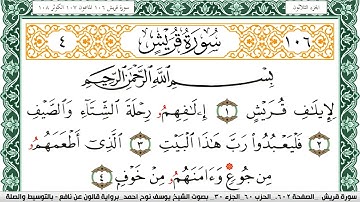 سورة قريش ١٠٦ الماعون ١٠٧ الكوثر ١٠٨ الجزء الثلاثون
١٠٦ سُورَةُ قُرَيْشٍ ٤
بِسْمِ اللَّهِ الرَّحْمَٰنِ الرَّحِيمِ
لِإِيلَٰفِ قُرَيْشٍ ١ إِۦلَٰفِهِمُۥ رِحْلَةَ الشِّتَآءِ وَالصَّيْفِ
٢ فَلْيَعْبُدُوا۟ رَبَّ هَٰذَا الْبَيْتِ ٣ الَّذِىٓ أَطْعَمَهُمُۥ
مِن جُوعٍ وَءَامَنَهُمُۥ مِنْ خَوْفٍ ٤
سورة قريش .. الصفحة ٦٠٢ .. الحزب ٦٠ .. الجزء ٣٠ .. بصوت الشيخ يوسف نوح احمد .. برواية قالون عن نافع - بالتوسيط والصلة